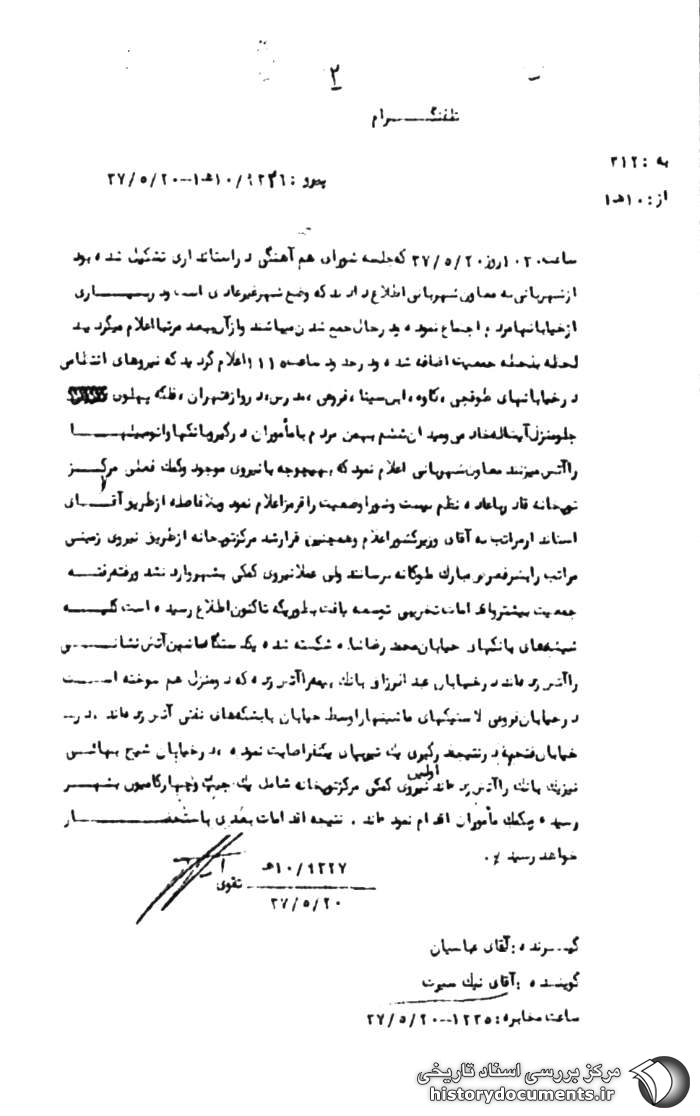 ۲
تلفنگـــــرام
به : ۳۱۲
از : ۱۰ هـ ۱
پیرو : ۱۰/۹۲۲۶ هـ ۱ - ۳۷/۵/۲۰
ساعت ۱۰۳۰ روز ۳۷/۵/۲۰ که جلسه شورای هم آهنگی در استانداری تشکیل شده بود
از شهربانی به معاون شهربانی اطلاع دادند که وضع شهر غیرعادی است و در بسیـــاری
از خیابانها مردم اجتماع نموده و در حال جمع شدن میباشند و از آن ببعد مرتبا اعلام میگردیـد
لحظه بلحظه جمعیت اضافه شده و در حدود ساعت ۱۱ اعلام گردید که نیروهای انتظامی
در خیابانهای طوقچی ، کاوه ، ابن سینا ، فروغی ، مدرس ، دروازه تهران ، فلکه پهلوی
جلو منزل آیت اله خادمی و میدان ششم بهمن مردم با مأموران درگیر و بانکها و اتومبیلهـــا
را آتش میزنند معاون شهربانی اعلام نمود که بهیچوجه با نیروی موجود و کمک فعلی مرکـــز
توپخانه قادر باعاده نظم نیست و شورا وضعیت را قرمز اعلام نمود و بلافاصله از طریق آقـــای
استاندار مراتب به آقای وزیر کشور اعلام و همچنین قرار شد مرکز توپخانه از طریق نیروی زمینی
مراتب را بشرفعرض مبارک ملوکانه برسانند ولی عملا نیروی کمکی بشهر وارد نشد و رفته رفتـــه
جمعیت بیشتر و اقدامات تخریبی توسعه یافت بطوریکه تاکنون اطلاع رسیده است کلیـــه
شیشه های بانکهای خیابان محمد رضا شاه شکسته شده یک دستگاه ماشین آتش نشانـــی
را آتش زده اند در خیابان عبدالرزاق بانک بهم را آتش زده که دو منزل هم سوخته اســـت
در خیابان فروغی لاستیکهای ماشینها را وسط خیابان با بشکه های نفتی آتش زده اند ، در ـ
خیابان فتحیه در نتیجه درگیری یک تیر بپای یکنفر اصابت نموده ، در خیابان شیخ بهائـــی
نیز یک بانک را آتش زده اند اولین نیروی کمکی مرکز توپخانه شامل یک جیپ و چهار کامیون بشهـــر
رسیده و بکمک مأموران اقدام نموده اند . نتیجه اقدامات بعدی باستحضـــــــار
خواهد رسید ٪.
تقوی
۱۰/۹۲۲۷ هـ ۱
۳۷/۵/۲۰
گیـــرنده : آقای عباسیان
گوینـده : آقای نیک سیرت
ساعت مخابره : ۱۲۲۵ - ۳۷/۵/۲۰
مرکز بررسی اسناد تاریخی
historydocuments.ir